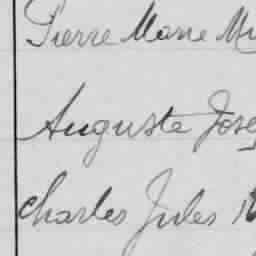 Pierre Marie
Auguste
Charles Jules